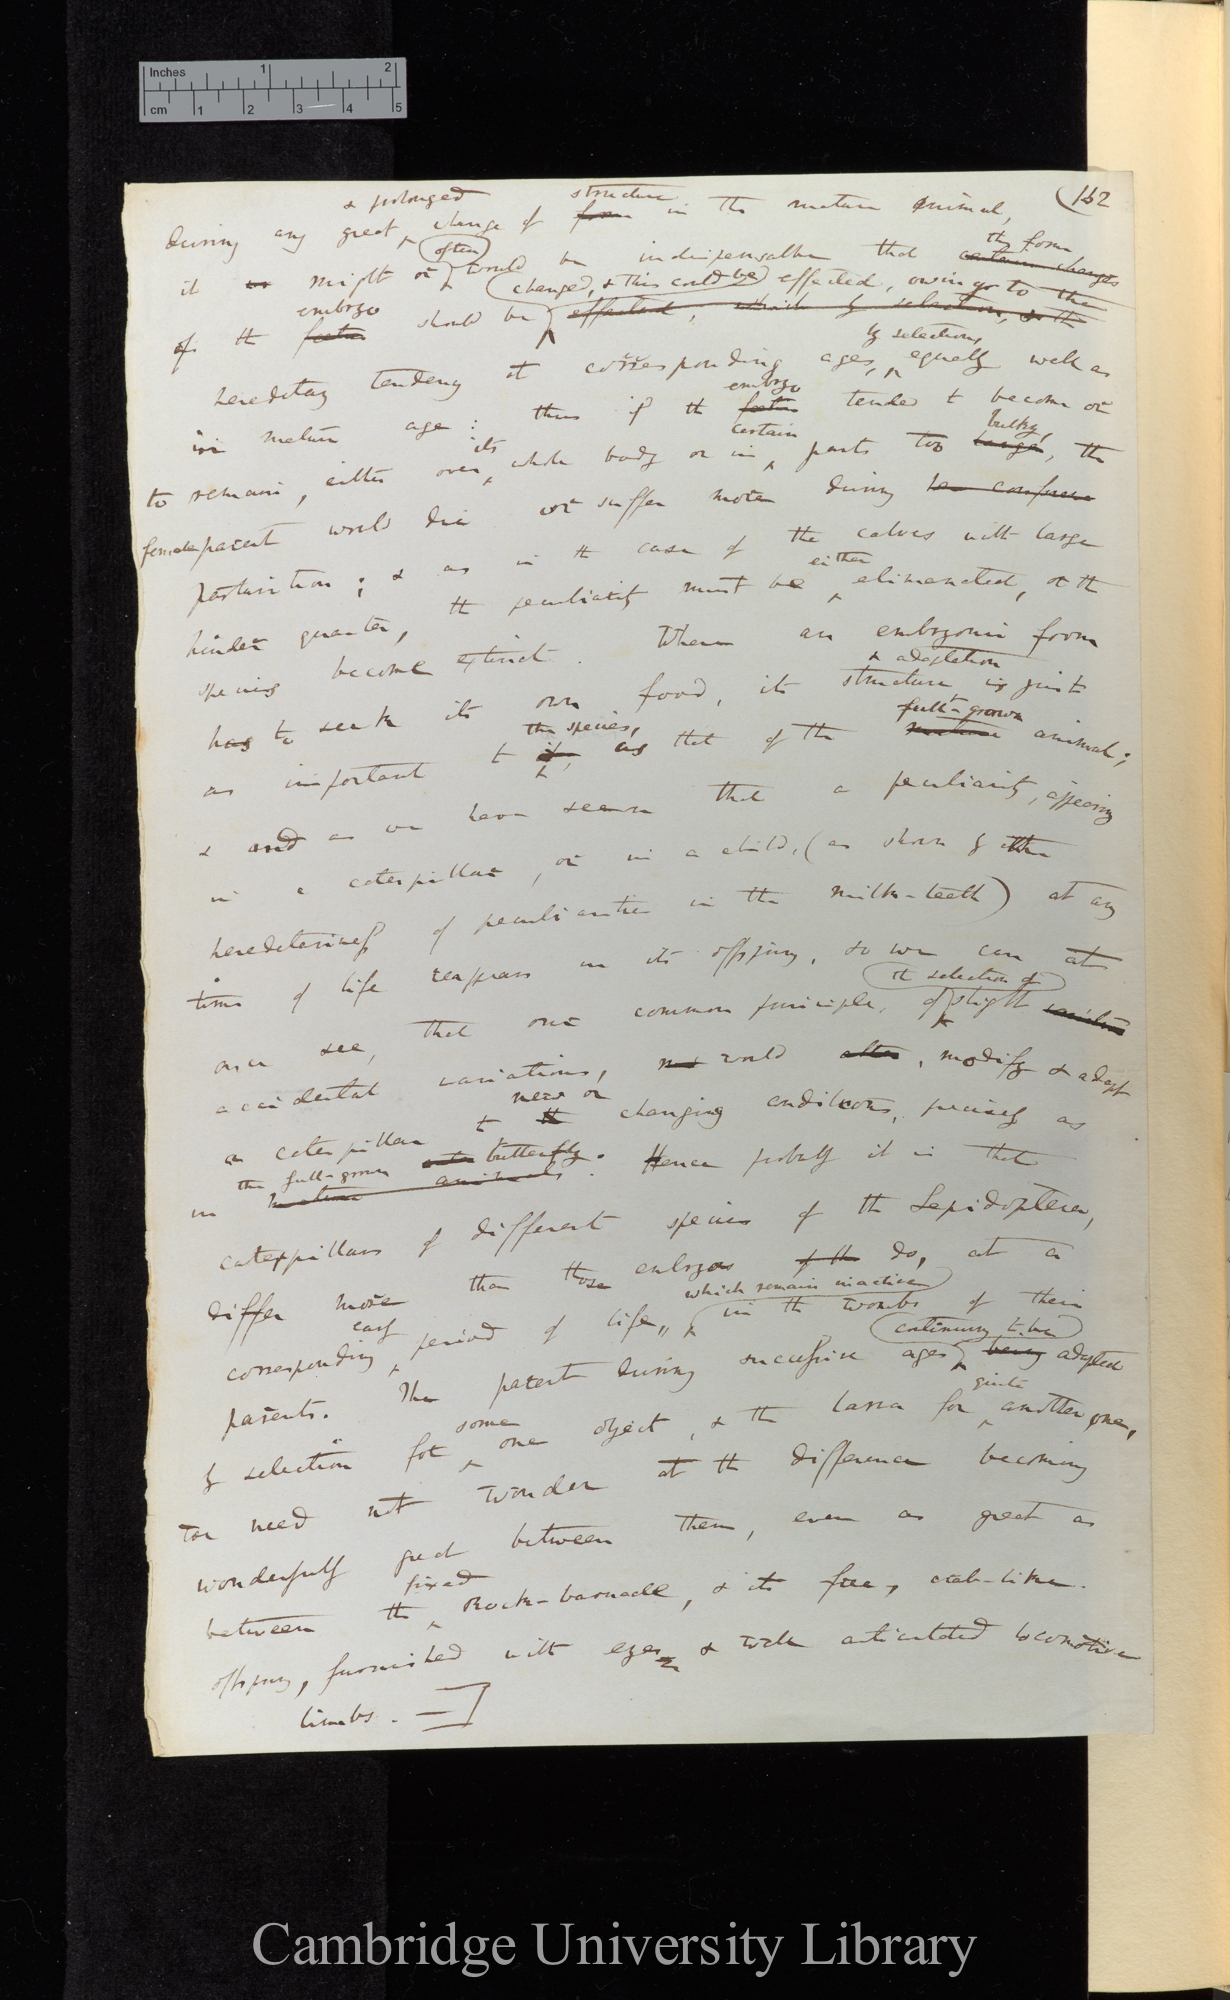 Inches 1 2
cm 1 2 3 4 5
(152
& prolonged structure
during any great change of form in the mature animal,
often the form
it might or would be indispensable that certain changes
embryo changed, & this could be effected, owing to the
of the foetus should be effected, which by selection, so the
by selection,
hereditary tendency at corresponding ages, equally well as
embryo
in mature age: thus if the foetus tended to become or
its certain bulky,
to remain, either over whole body or in parts too large, the
female parent would die or suffer more during her
parturition; & as in the case of the calves with large
either
hinder quarter, the peculiarity must be eliminated, or the
species become extinct. When an embryonic form
& adaptation
has to seek its own food, its structure is just
the species, full-grown
as important to it, as that of the mature animal;
& and as we have seen that a peculiarity, appearing
in a caterpillar, or in a child, (as shown by the
hereditariness of peculiarities in the milk-teeth) at any
time of life reappears in its offspring, so we can at
the selection of
once see, that our common principle, of slight
accidental variations, would alter, modify & adapt
new or
a caterpillar to the changing conditions, precisely as
the full-grown butterfly.
in mature animals. Hence probably it is that
caterpillars of different species of the Lepidoptera,
differ more than those embryos of the do, at a
early which remain inactive
corresponding period of life, in the wombs of their
continuing to be
parents. The parent during successive ages being adapted
some quite
by selection for one object, & the larva for another one,
we need not wonder at the difference becoming
wonderfully great between them, even as great as
fixed
between the Rock-barnacle, & its free, crab-like
offspring, furnished with eyes & with articulated locomotive
limbs. —]
Cambridge University Library